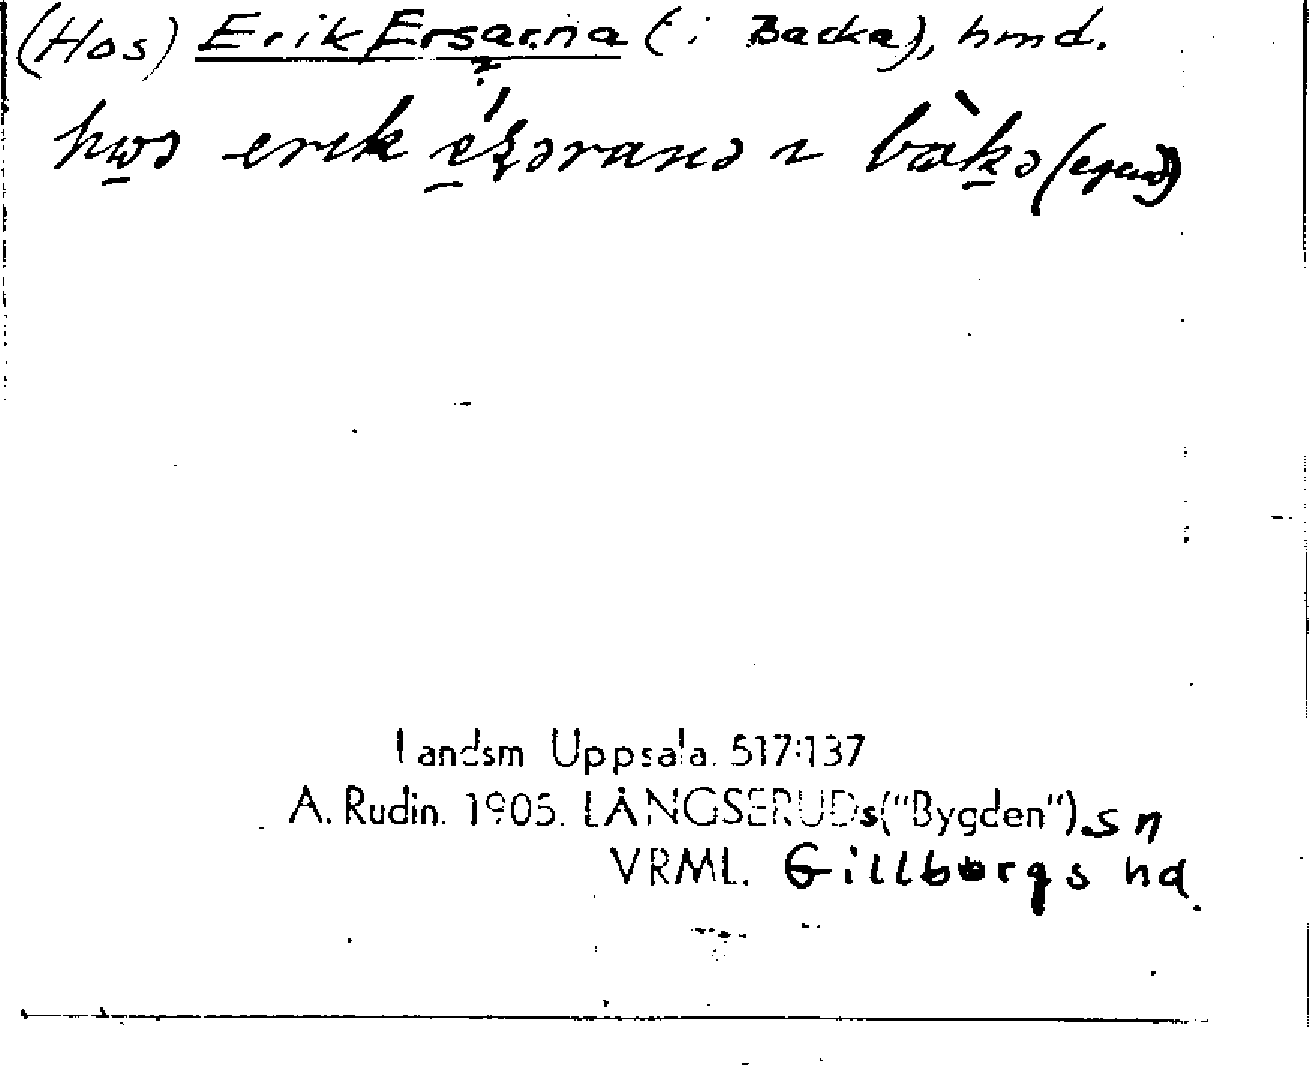 (Hos) Erik Ersarna (i Backa), hmd.
?
hos erik i bakə
Landsm Uppsala. 517:137
A. Rudin. 1905. LÅNGSERUDs("Bygden").sn
VRML. Gillbergs hd.